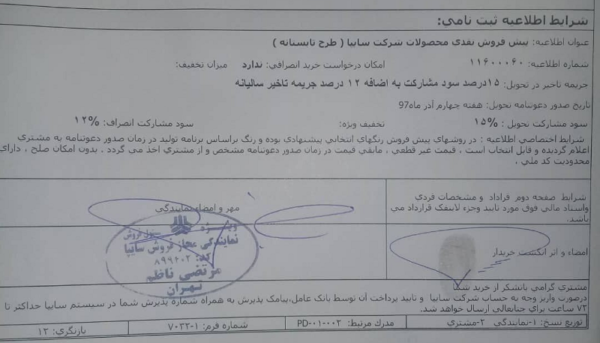 شرایط اطلاعیه ثبت نامی:
عنوان اطلاعیه: پیش فروش نقدی محصولات شرکت سایپا ( طرح تابستانه )
شماره اطلاعیه: ۱۱۴۰۰۰۶۰ امکان درخواست خرید انصرافی: ندارد میزان تخفیف:
جریمه تاخیر در تحویل: ۱۵درصد سود مشارکت به اضافه ۱۲ درصد جریمه تاخیر سالیانه
تاریخ صدور دعوتنامه تحویل: هفته چهارم آذر ماه97
سود مشارکت تحویل: ۱۵% تخفیف ویژه: سود مشارکت انصراف: ۱۲%
شرایط اختصاصی اطلاعیه : در روشهای پیش فروش رنگهای انتخابی پیشنهادی بوده و رنگ براساس برنامه تولید در زمان صدور دعوتنامه به مشتری
اعلام گردیده و قابل انتخاب است . قیمت غیر قطعی . مابقی قیمت در زمان صدور دعوتنامه مشخص و از مشتری اخذ می گردد . بدون امکان صلح . دارای
محدودیت کد ملی .
شرایط صفحه دوم قراداد و مشخصات فردی
واسناد مالی فوق مورد تایید وجزء لاینفک قرارداد می
باشد.
مهر و امضاء نمایندگی
امضاء و اثر انگشت خریدار
نمایندگی مجاز فروش سایپا
کد: ۸۹۹۴۰۲
مرتضی ناظم
تهران
مشتری گرامی باتشکر از خرید شما
درصورت واریز وجه به حساب شرکت سایپا و تایید پرداخت آن توسط بانک عامل،پیامک پذیرش به همراه شماره پذیرش شما در سیستم سایپا حداکثر تا
۷۲ ساعت برای جنابعالی ارسال خواهد شد.
توزیع نسخ: ۱-نمایندگی ۲-مشتری مدرک مرتبط: PD-۰۱-۰۰۲ شماره فرم: ۷۰۲۲-۱ بازنگری: ۱۲